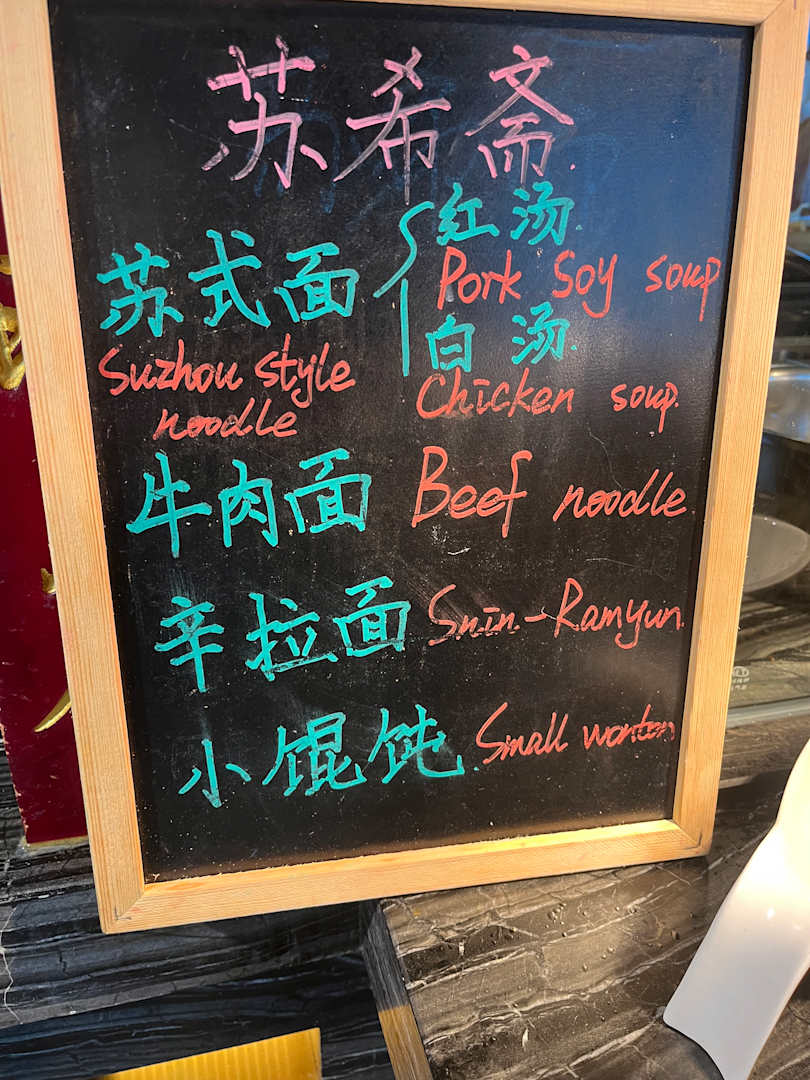 苏希斋
苏式面
Suzhou style
noodle
红汤
Pork Soy soup
白汤
Chicken soup.
牛肉面 Beef noodle
辛拉面 Snin-Ramyun
小馄饨 Small wonton